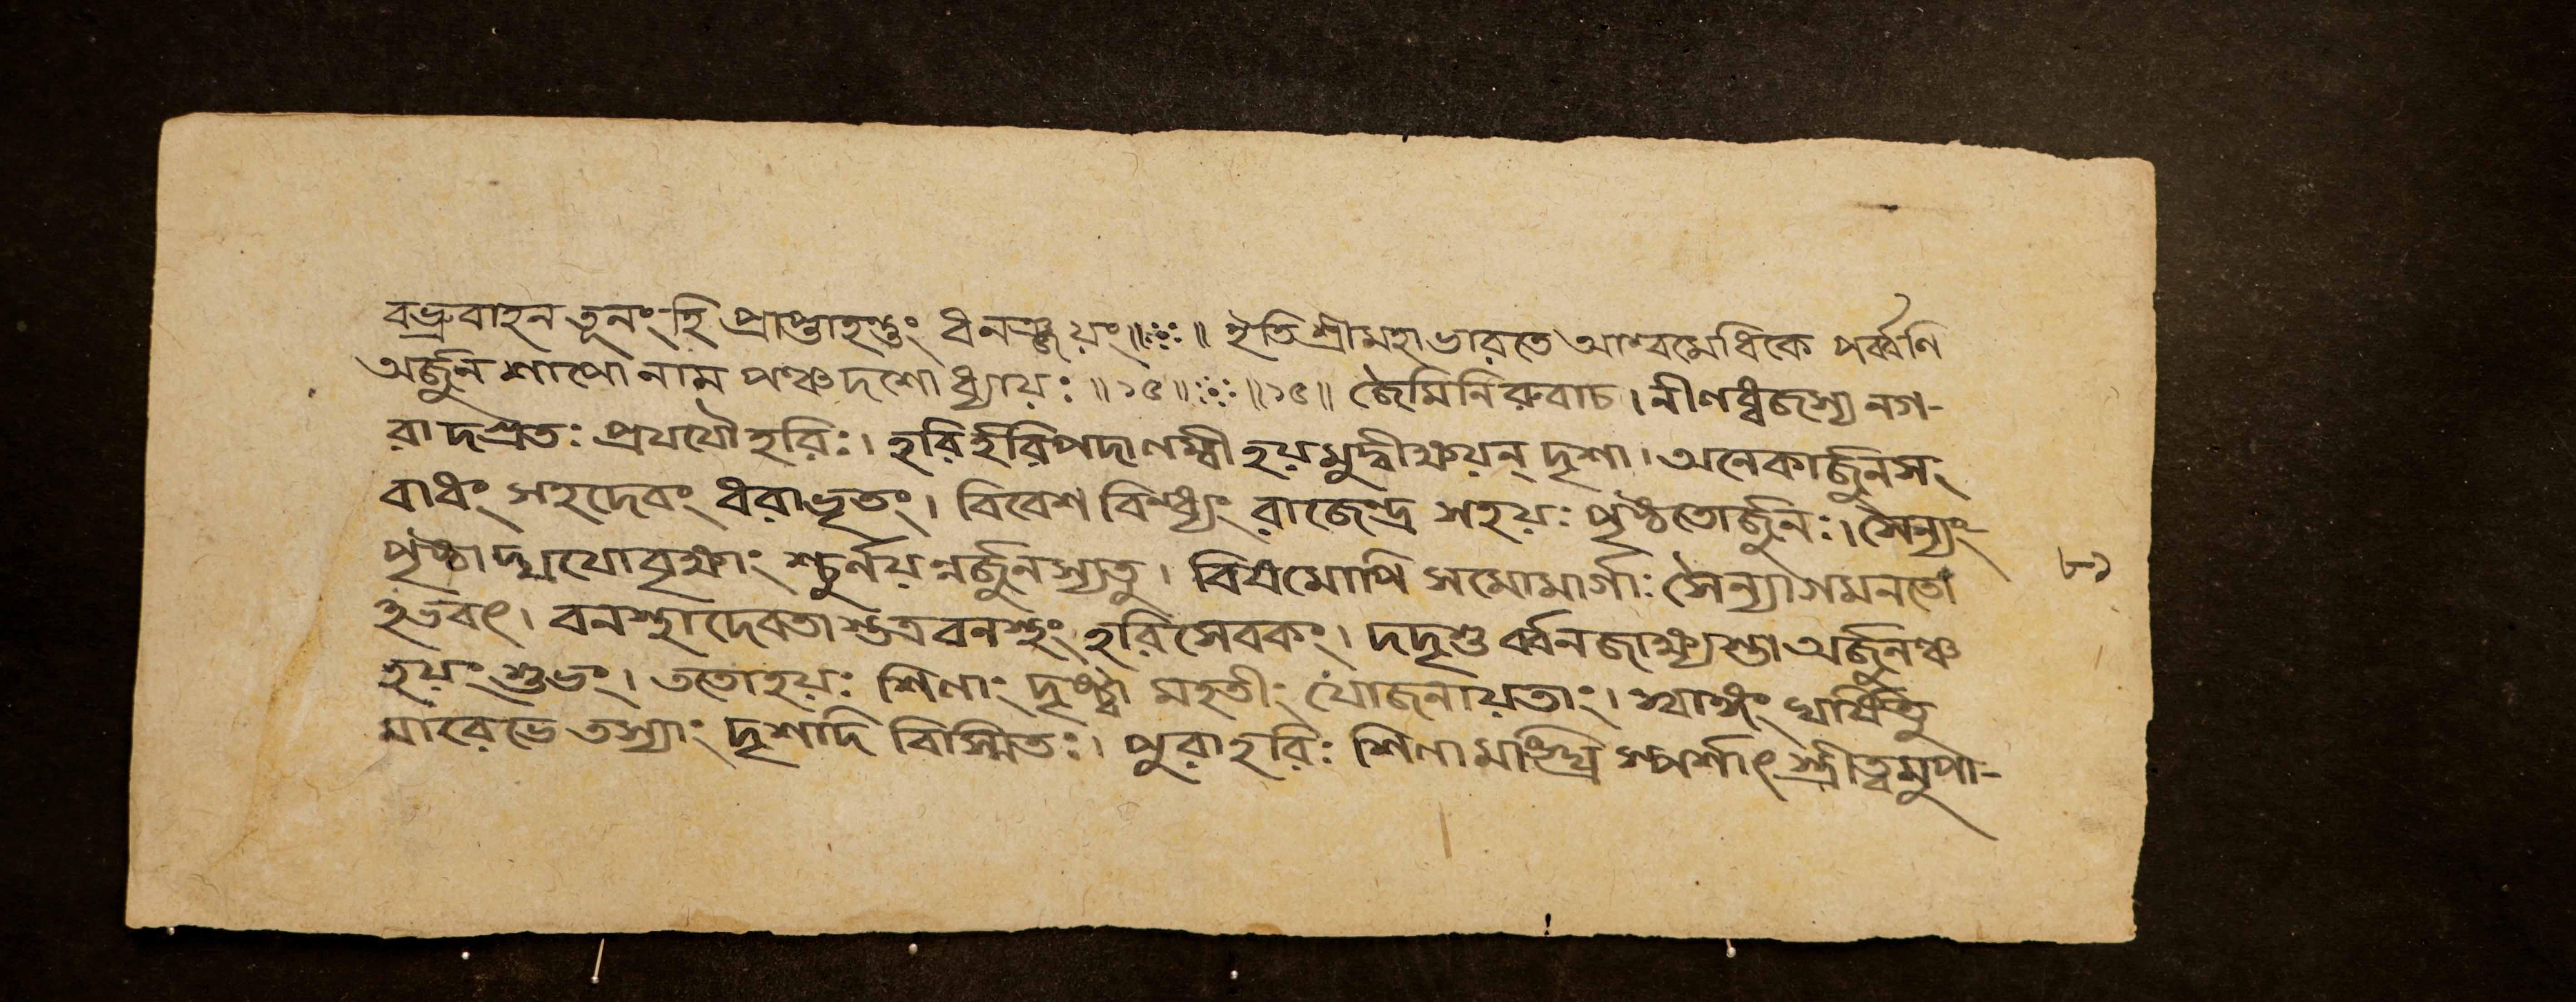 বভ্রুবাহন তূনং হি প্রাপ্তাহন্তুং ধনঞ্জয়ং॥ঃ॥ ইতি শ্রীমহাভারতে আশ্বমেধিকে পর্ব্বণি
অর্জুন শাপো নাম পঞ্চদশোধ্যায়ঃ॥১৫॥ঃ॥১৫॥ জৈমিনিরুবাচ। নীলধ্বজস্য নগ-
রাদগ্রতঃ প্রযযৌ হরিঃ। হরির্হরিপদালম্বী হয়মুদ্বীক্ষয়ন্ দৃশা। অনেকার্জুনসং
বাধং সহদেবং ধরাভৃতং। বিবেশ বিন্ধ্যং রাজেন্দ্র সহয়ঃ পৃষ্ঠতোর্জুনঃ। সৈন্যং
পৃষ্ঠাদ্যযৌবৃক্ষাং শ্চুর্নয়ন্নর্জুনস্যতু। বিষমোপি সমোমার্গাঃ সৈন্যাগমনতো
হভবৎ। বনস্থাদেবতাস্তত্র বনস্থং হরিসেবকং। দদৃশু র্বনজাক্ষ্যস্তা অর্জুনঞ্চ
হয়ং শুভং। ততোহয়ঃ শিলাং দৃষ্ট্বা মহতীং যোজনায়তাং। স্বাঙ্গং ঘর্ষিতু
মারেভে তস্যাং দৃশাদি বিস্মিতঃ। পুরাহরিঃ শিলামাংঘ্রি স্পর্শাৎ স্ত্রীত্বমুপা-
৮১